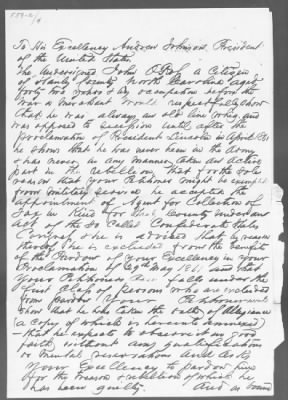 To His Excellency Andrew Johnson, President
of the United States.
The undersigned John a Citizen
of Stanly County North Carolina aged
forty two years & by occupation before the
War a Merchant would respectfully show
that he was always an old line Whig and
was opposed to secession until after the
proclamation of President Lincoln in April 1861
he shows that he was never in the Army
& has never in any manner taken an active
part in the rebellion, that for the sole
reason that your Petitioner might be exempt
from military service he accepted the
appointment of Agent for Collection of
Tax in Kind for said County under an
act of the So Called Confederate States
Congress he is advised that by reason
thereof he is excluded from the benefits
of the Pardon of your Excellency in your
Proclamation of 29th May 1865 and that
your Petitioner fall under the
Class of persons who are excluded
from pardon Your Petitioner would
show that he has taken the oath of Allegiance
(a copy of which is hereunto annexed
that he expects to observe it in good
faith without any qualifications
or mental reservations and asks
Your Excellency to pardon him
for the treason & rebellion of which he
has been guilty. And as bound